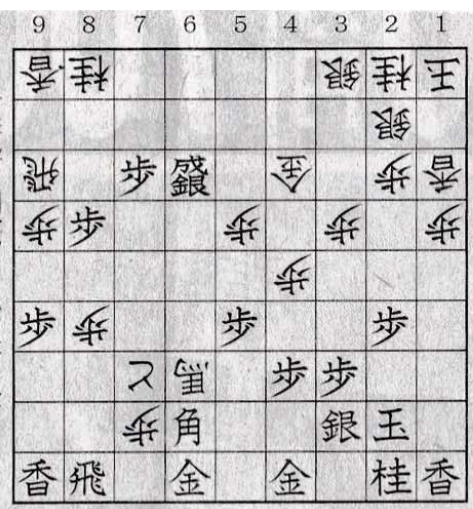 9 8 7 6 5 4 3 2 1
香 桂 銀 桂 王
銀
飛 歩 成銀 金 歩 香
歩 歩 歩 歩 歩
歩
歩 歩 歩 歩
と 馬 歩 歩
歩 角 銀 玉
香 飛 金 金 桂 香